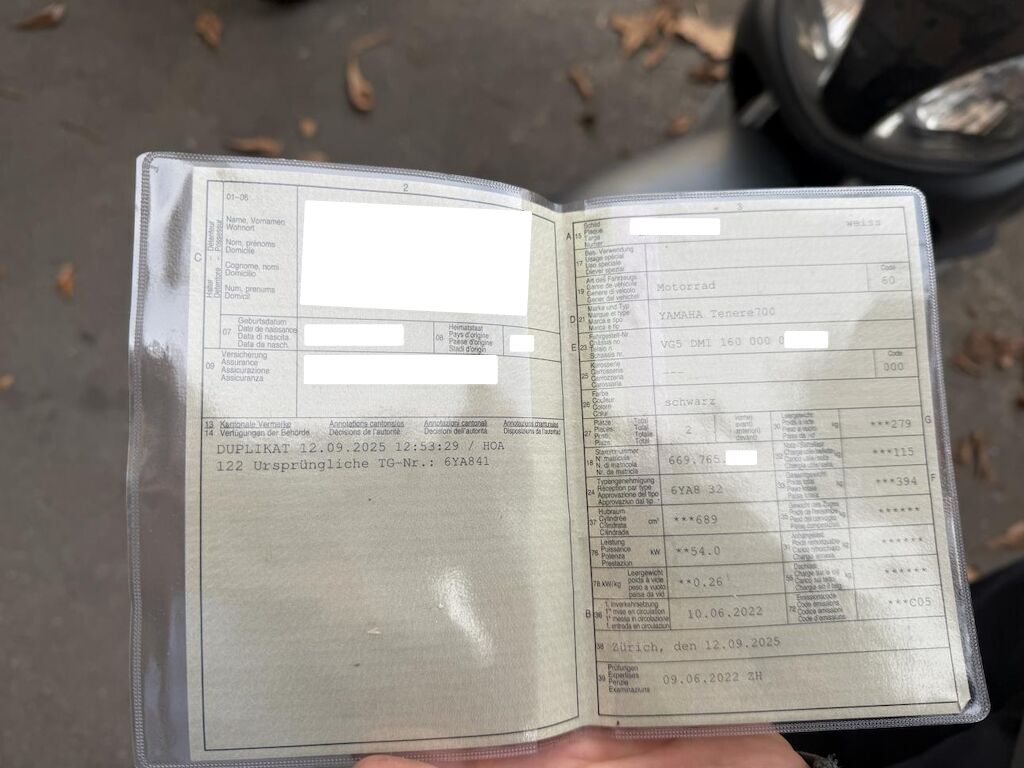 2
01-06
Name, Vornamen
Wohnort
Nom, prénoms
Domicile
Cognome, nomi
Domicilio
Num, prenums
Domicil
C
Halter Détenteur
Detentore Possessur
07
Geburtsdatum
Date de naissance
Data di nascita
Data da nasch.
08
Heimatstaat
Pays d'origine
Paese d'origine
Stadi d'origin
09
Versicherung
Assurance
Assicurazione
Assicuranza
13 Kantonale Vermerke Annotations cantonales Annotazioni cantonali Annotaziuns chantunalas
14 Verfügungen der Behörde Décisions de l'autorité Decisioni dell'autorità Disposiziuns da l'autoritad
DUPLIKAT 12.09.2025 12:53:29 / HOA
122 Ursprüngliche TG-Nr.: 6YA841
3
A 15 Schild
Plaque
Targa
Numer
weiss
17 Bes. Verwendung
Usage spécial
Uso speciale
Diever spezial
19 Art des Fahrzeugs
Genre de véhicule
Genere di veicolo
Gener dal vehichel
Motorrad
Code
60
D 21 Marke und Typ
Marque et type
Marca e tipo
Marca e tip
YAMAHA Tenere700
E 23 Fahrgestell-Nr.
Châssis no
Telaio n.
Schassis nr.
VG5 DM1 160 000 0
25 Karosserie
Carrosserie
Carrozzeria
Carossaria
---
Code
000
26 Farbe
Couleur
Colore
Colur
schwarz
27 Plätze
Places
Posti
Plazs
Total
Total
Totale
Total
2
vorne
avant
anteriori
davant
30 Leergewicht
Poids à vide
Peso a vuoto
Paisa da vid
kg
***279
G
18 Stammnummer
N° matricule
N. di matricola
Nr. da matricla
669.765.
***115
24 Typengenehmigung
Réception par type
Approvazione del tipo
Approvaziun dal tip
6YA8 32
***394
F
37 Hubraum
Cylindrée
Cilindrata
Cilindrada
cm³
***689
******
76 Leistung
Puissance
Potenza
Prestaziun
kW
**54.0
******
78 kW/kg
Leergewicht
poids à vide
peso a vuoto
paisa da vid
**0.26
******
B 36 1. Inverkehrsetzung
1re mise en circulation
1a messa in circolazione
1. entrada en circulaziun
10.06.2022
72 Emissionscode
Code émissions
Codice emissioni
Code d'emissiuns
***C05
38 Zürich, den 12.09.2025
39 Prüfungen
Expertises
Perizie
Examinaziuns
09.06.2022 ZH